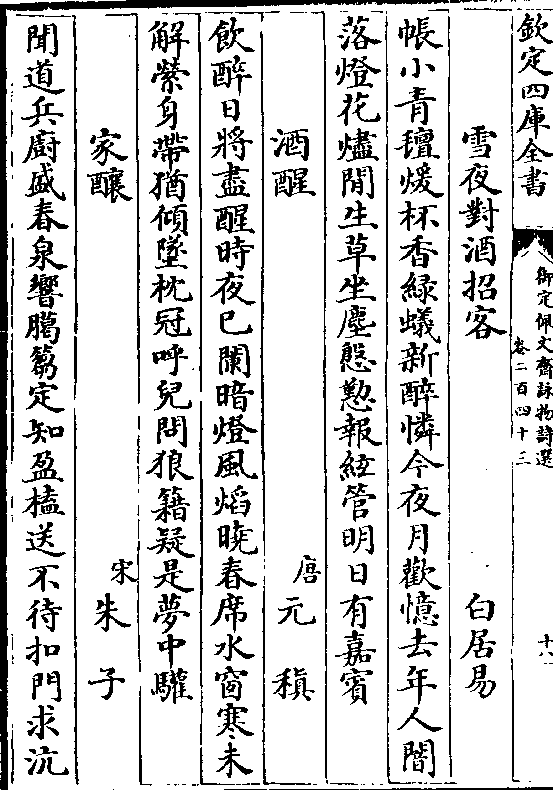 欽定四庫全書
御定佩文齋詠物詩選
卷二百四十三
雪夜對酒招客
白居易
帳小青氊煖杯香緑蟻新醉憐今夜月歡憶去年人闇
落燈花燼閒生草坐塵慇懃報絃管明日有嘉賓
酒醒
唐元稹
飲醉日將盡醒時夜已闌暗燈風焰曉春席水窗寒未
解縈身帶猶傾墜枕冠呼兒問狼籍疑是夢中驩
家釀
宋朱子
聞道兵廚盛春泉響臈篘定知盈榼送不待扣門求沆